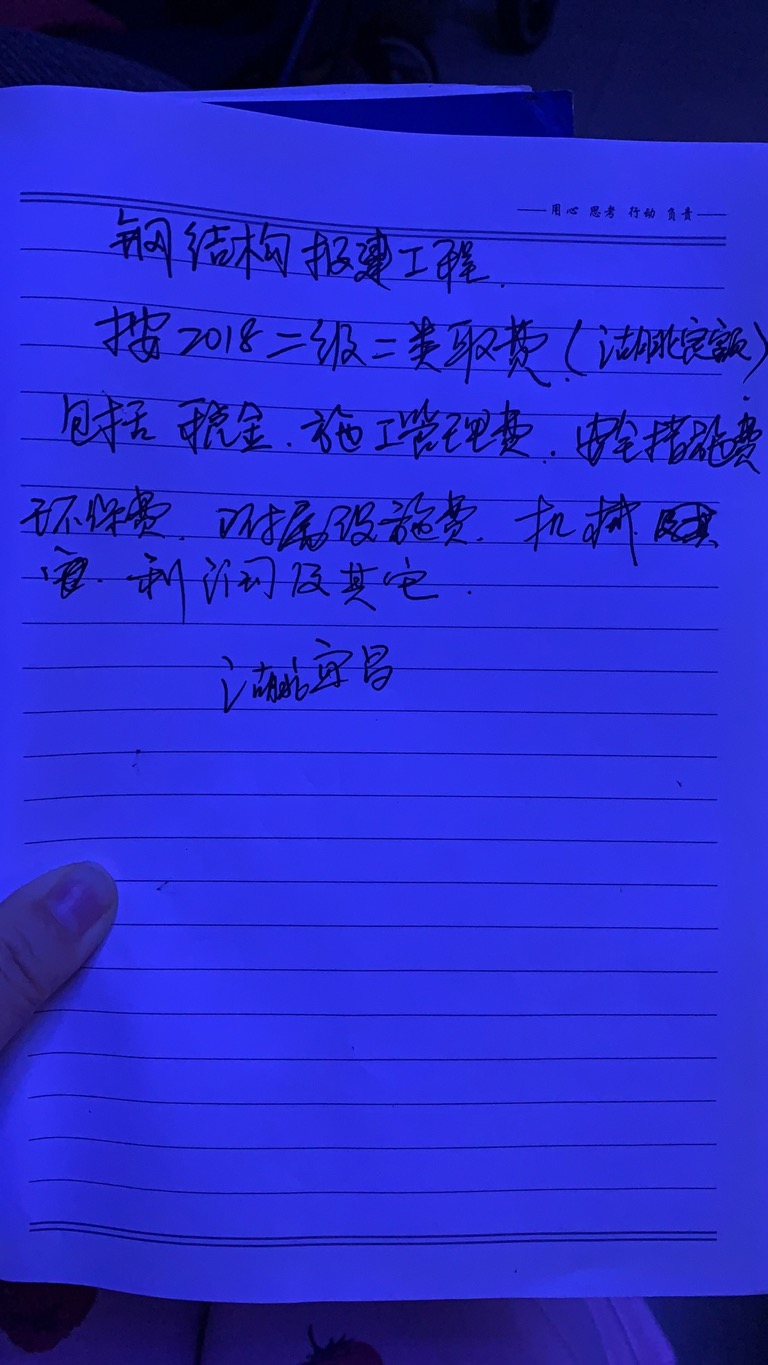 用心 思考 行动 负责
钢结构报建工程.
按2018二级二类取费(湖北定额)
包括 税金.施工管理费.安全措施费
环保费.附属设施费.机械
利润及其它.
湖北宜昌